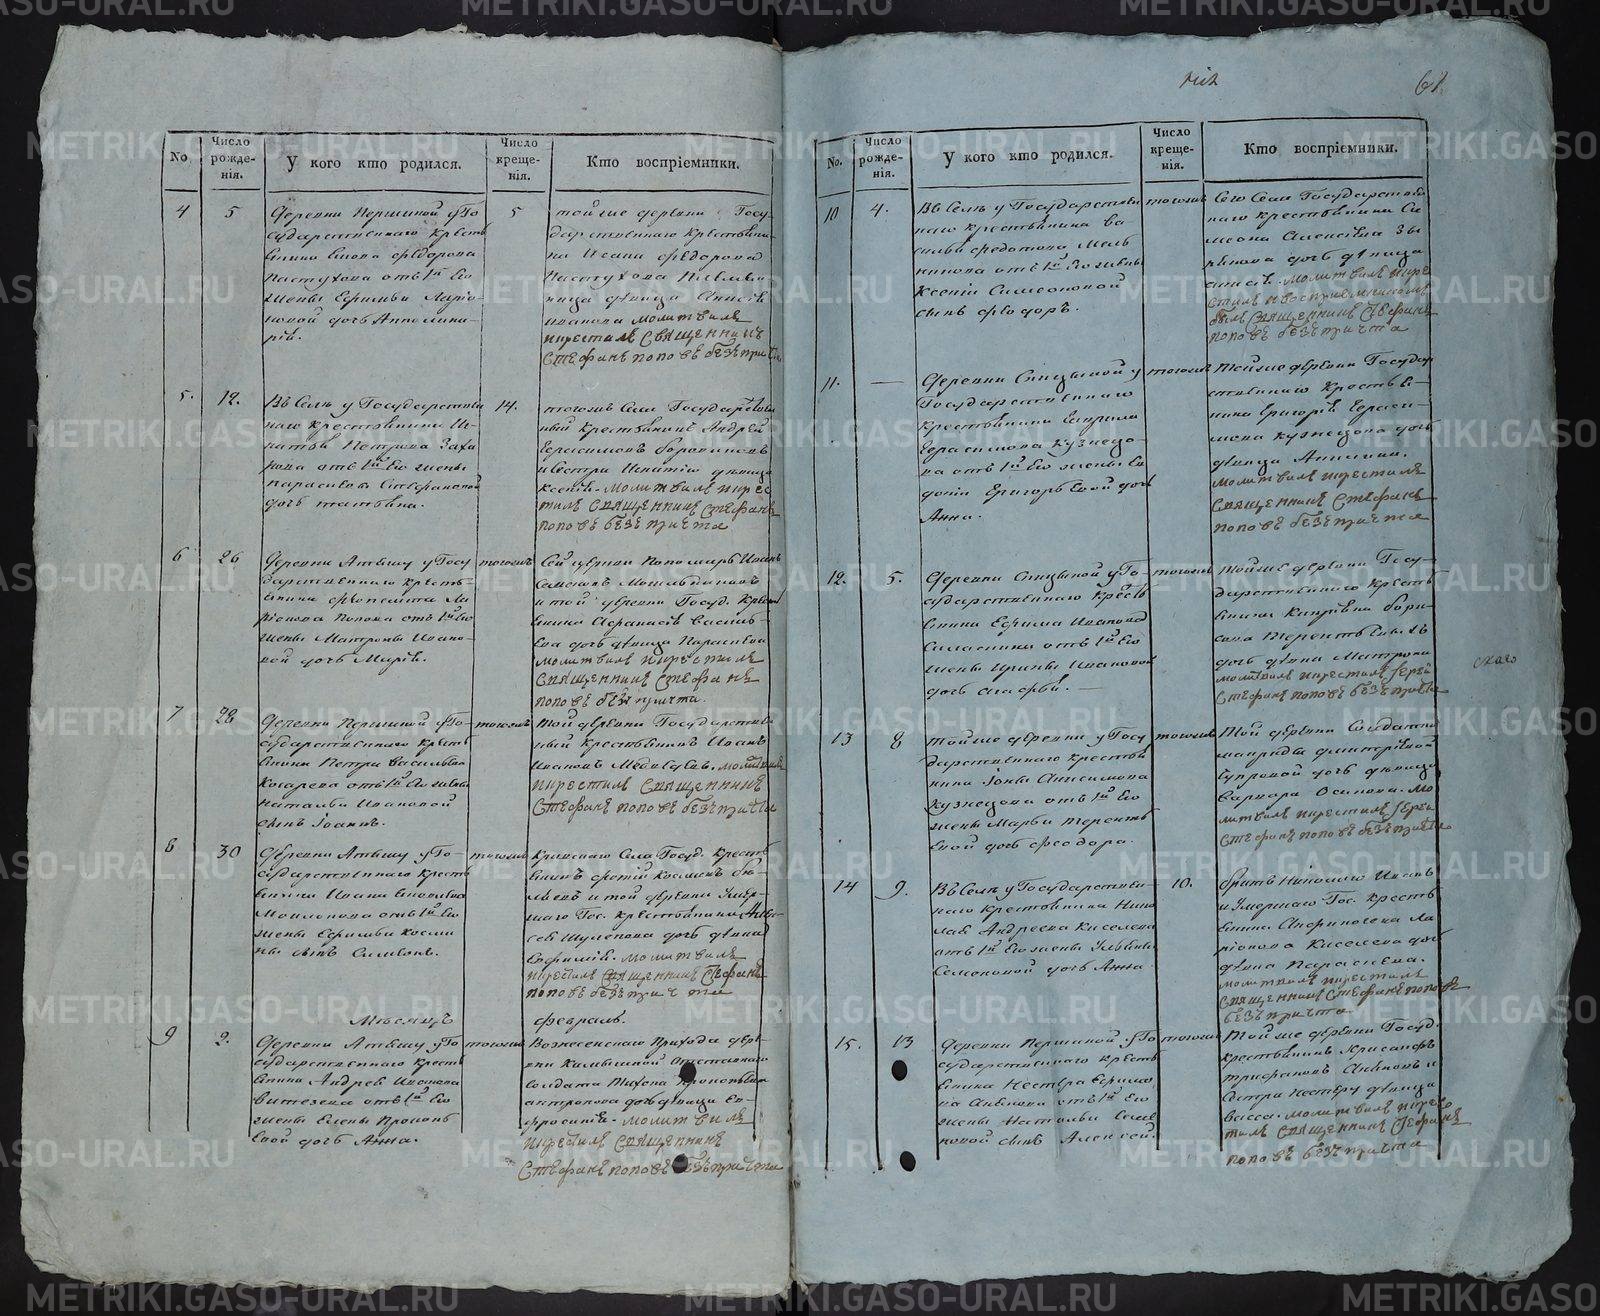 METRIKI.GASO-URAL.RU
61
No
Число рожденія.
У кого кто родился.
Число крещенія.
Кто воспріемники.
4
5
Деревни Першиной у Го-
сударственнаго кресть
янина
Федорова
Пастухова отъ 1й Его
жены Ефимьи Ларіо-
новой дочь Апполина-
рія.
5
тойже деревни Госу-
дарственнаго крестьяни-
на Федорова
Пастухова
девица
Иванова молитвилъ
икрестилъ священникъ
Стефанъ поповъ безъ причта
5.
12.
Въ Селе у Государствен
наго крестьянина Иг-
натья Петрова Заха
рова отъ 1й Его жены
Параскевы Стефановой
дочь татьяна.
14.
тогожъ Села Государствен
ный крестьянинъ Андрей
Герасимовъ
и сестра Игнатія девица
Ксенія. молитвилъ икрес
тилъ священникъ Стефанъ
поповъ безъ причта
6
26
Деревни у Госу
дарственнаго кресть-
янина Ла
ріонова Попова отъ 1й Его
жены Матроны Ивано-
вой дочь Марія.
тогожъ
Сей церкви Пономарь Иванъ
и той деревни Госуд. крест
янина Афанасія Василь-
ева дочь девица Параскева
молитвилъ икрестилъ
священникъ Стефанъ
поповъ безъ причта.
7
28
Деревни Першиной у Го-
сударственнаго кресть
янина Петра Васильева
Косарева отъ 1й Его жены
Натальи Ивановой
сынъ Іоаннъ.
тогожъ
той деревни Государствен
ный крестьянинъ Иванъ
Ивановъ Медведевъ. молитвилъ
икрестилъ священникъ
Стефанъ поповъ безъ причта
8
30
Деревни у Го-
сударственнаго кресть
янина Ивана
отъ 1й Его
жены Ефимьи Косми
ны сынъ Симеонъ.
тогожъ
Села Госуд. кресть
янинъ
и той деревни Умер-
шаго Гос. крестьянина
Шулепова дочь девица
Евфимія. молитвилъ
икрестилъ священникъ Стефанъ
поповъ безъ причта
Месяцъ февраль.
9
2.
Деревни у Го
сударственнаго кресть
янина Андрея Иванова
отъ 1й Его
жены Елены Прокопь
евой дочь Анна.
тогожъ
Вознесенскаго Прихода дерев
ни Камышной Отставнаго
солдата Тихона Прокопьева
антропова дочь девица Ев-
фросинія. молитвилъ
икрестилъ священникъ
Стефанъ поповъ безъ причта
No.
Число рожденія.
У кого кто родился.
Число крещенія.
Кто воспріемники.
10
4.
Въ Селе у Государствен
наго крестьянина Ва
силья Федотова Мель
никова отъ 1й Его жены
Ксеніи Симеоновой
сынъ Феодоръ.
тогожъ
Сего Села Государствен
наго крестьянина Си
меона Алексеева Зы
рянова дочь девица
молитвилъ икре
стилъ и восприемникомъ
былъ священникъ Стефанъ
поповъ безъ причта
11.
—
Деревни Спицыной у
Государственнаго
крестьянина Гаврила
Герасимова Кузнецо-
ва отъ 1й Его жены Ев
докіи Григорьевой дочь
Анна.
тогожъ
Тойже деревни Государ
ственнаго крестья-
нина Григорія Гераси-
мова Кузнецова дочь
девица
молитвилъ икрестилъ
священникъ Стефанъ
поповъ безъ причта
12.
5.
Деревни Спицыной у Го-
сударственнаго кресть
янина Ефима Иванова
отъ 1й Его
жены Ирины Ивановой
дочь Агафья. —
тогожъ
Тойже деревни Госу-
дарственнаго кресть
янина Кипріяна Бори-
сова
дочь девица Матрона
молитвилъ икрестилъ іерей
Стефанъ поповъ безъ причта
скаго
13
8
тойже деревни у Госу
дарственнаго крестья
нина Іоны Анисимова
Кузнецова отъ 1й Его
жены Марьи Теренть
евой дочь Феодора.
тогожъ
Той деревни Солдатки
Дмитріевой
дочь девица
Варвара Осипова. Мо
литвилъ икрестилъ іерей
Стефанъ поповъ безъ причта
14
9.
Въ Селе у Государствен-
наго крестьянина Нико
лая Андреева Киселева
отъ 1й Его жены Ульяны
Семеновой дочь Анна.
10.
братъ Николаю Иванъ
и Умершаго Гос. кресть
янина Анфиногена Ла
ріонова Киселева дочь
девица Параскева.
молитвилъ икрестилъ
священникъ Стефанъ поповъ
безъ причта
15.
13
Деревни Першиной у Го
сударственнаго кресть
янина Нестера Ефимо-
ва отъ 1й Его
жены Натальи Семе
новой сынъ Алексей.
тогожъ
Тойже деревни Госуд.
крестьянинъ Крисанфъ
Трифановъ и
сестра Нестеру девица
Васса. молитвилъ икрес
тилъ священникъ Стефанъ
поповъ безъ причта